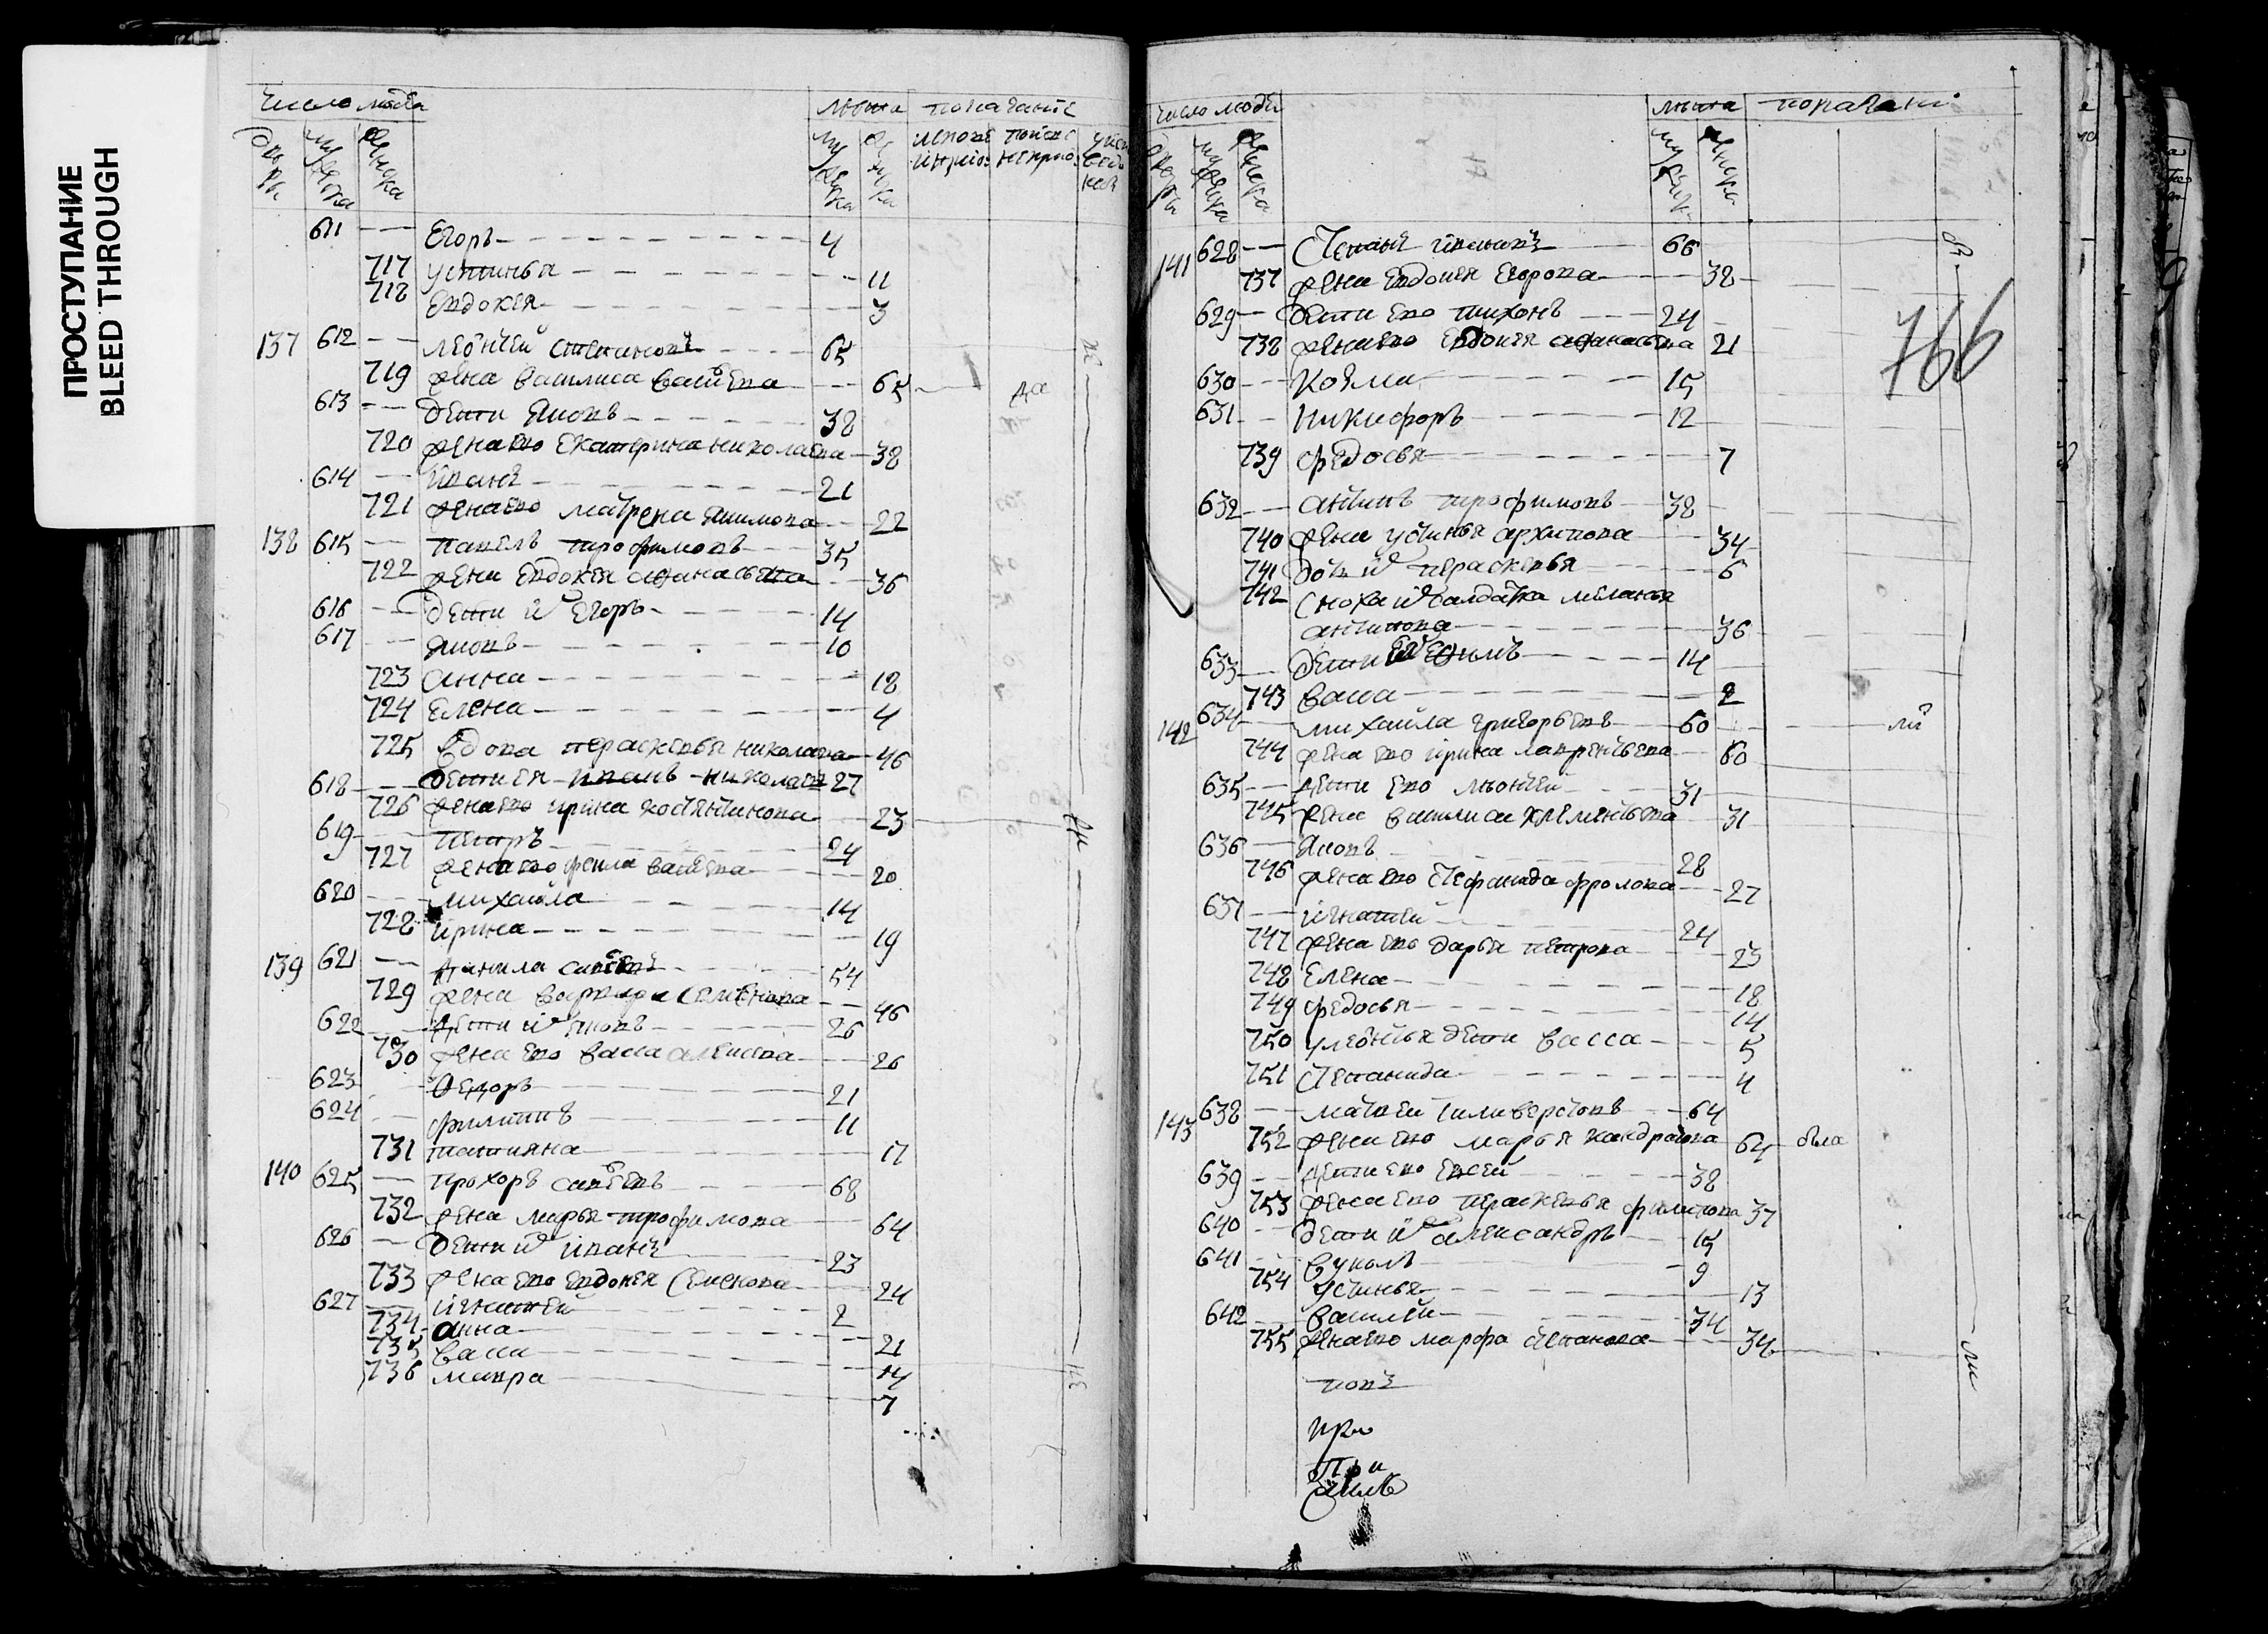 ПРОСТУПАНИЕ
BLEED THROUGH
число людеи лѣта показаніе
дворы мужеска женска мужеска женска
611 Егоръ 4
717 устинья 11
718 Евдокея 3
137 612 леонтей степановъ 65
719 жена василиса васильева 65
613 дети Яковъ 38
720 жена ево екатерина николаева 38
614 иванъ 21
721 жена ево матрена якимова 22
138 615 павелъ трофимовъ 35
722 жена евдокея афанасьева 36
616 дети их егоръ 14
617 яковъ 10
723 анна 18
724 елена 4
725 вдова пераскевья николаева 46
618 дети ея иванъ николаевъ 27
726 жена ево ирина костентинова 23
619 петръ 24
727 жена ево фекла васильева 20
620 михайла 14
728 ирина 19
139 621 данила савельевъ 54
729 жена варвара семенова 46
622 дети их яковъ 26
730 жена ево васса алексеева 26
623 федоръ 21
624 филиппъ 11
731 татияна 17
140 625 прохоръ савельевъ 68
732 жена марья трофимова 64
626 дети их иванъ 23
733 жена ево евдокея семенова 24
627 игнатей 2
734 анна 21
735 васса 14
736 мавра 7
число люде лѣта показані
дворы мужеска женска женска
141 628 степанъ ивановъ 66
737 жена евдокея егорова 38
629 дети ево тихонъ 24
738 жена ево евдокея афанасьева 21
630 козма 15
631 никифоръ 12
739 федосья 7
766
632 антипъ трофимовъ 38
740 жена устинья архипова 34
741 дочь их пераскевья 6
742 сноха их салдатка меланья
антипова 36
633 дети ея ефимъ 14
743 васса 2
142 634 михайла григорьевъ 60
744 жена ево ирина лаврентьева 60
635 дети ево леонтей 31
745 жена василиса клементьева 31
636 Яковъ 28
746 жена ево стефанида фролова 27
637 игнатей 24
747 жена ево дарья петрова 23
748 елена 18
749 федосья 14
750 у леонтья дети васса 5
751 степанида 4
143 638 матвеи силиверстовъ 64
752 жена ево марья кандратова 64 была
639 дети ево евсей 38
753 жена ево пераскевья филипова 37
640 дети их александръ 15
641 вуколъ 9
754 устинья 13
642 василей 34
755 жена ево марфа степанова 34
попъ